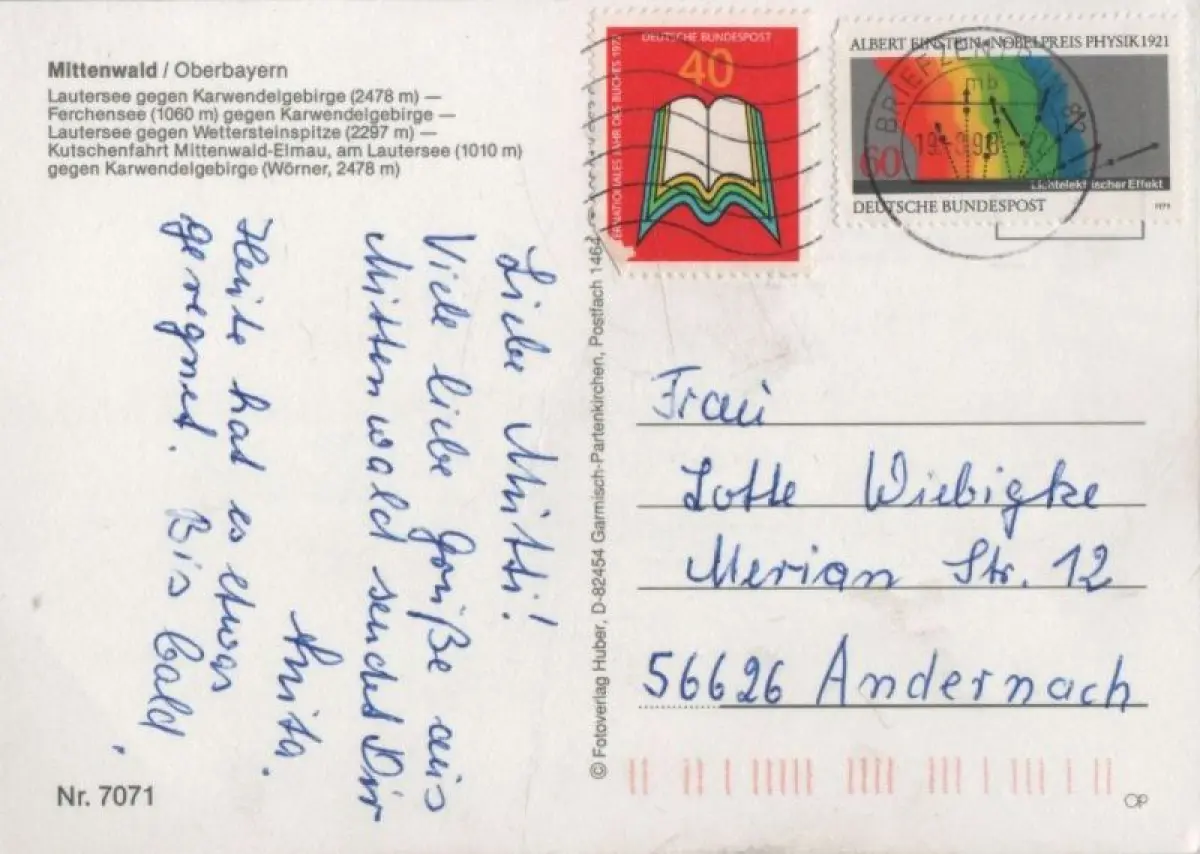 Mittenwald / Oberbayern
Lautersee gegen Karwendelgebirge (2478 m) —
Ferchensee (1060 m) gegen Karwendelgebirge —
Lautersee gegen Wettersteinspitze (2297 m) —
Kutschenfahrt Mittenwald-Elmau, am Lautersee (1010 m)
gegen Karwendelgebirge (Wörner, 2478 m)
Liebe Mutti!
Viele liebe Grüße aus
Mittenwald sendet Dir
Anita.
Heute hat es etwas
geregnet. Bis bald
Nr. 7071
© Fotoverlag Huber, D-82454 Garmisch-Partenkirchen, Postfach 1464
DEUTSCHE BUNDESPOST
40
ERNATIONALES JAHR DES BUCHES 1972
ALBERT EINSTEIN·NOBELPREIS PHYSIK 1921
60
Lichtelektrischer Effekt
DEUTSCHE BUNDESPOST
1979
BRIEFZENTRUM 82
mb
Frau
Lotte Wiebigke
Merian Str. 12
56626 Andernach